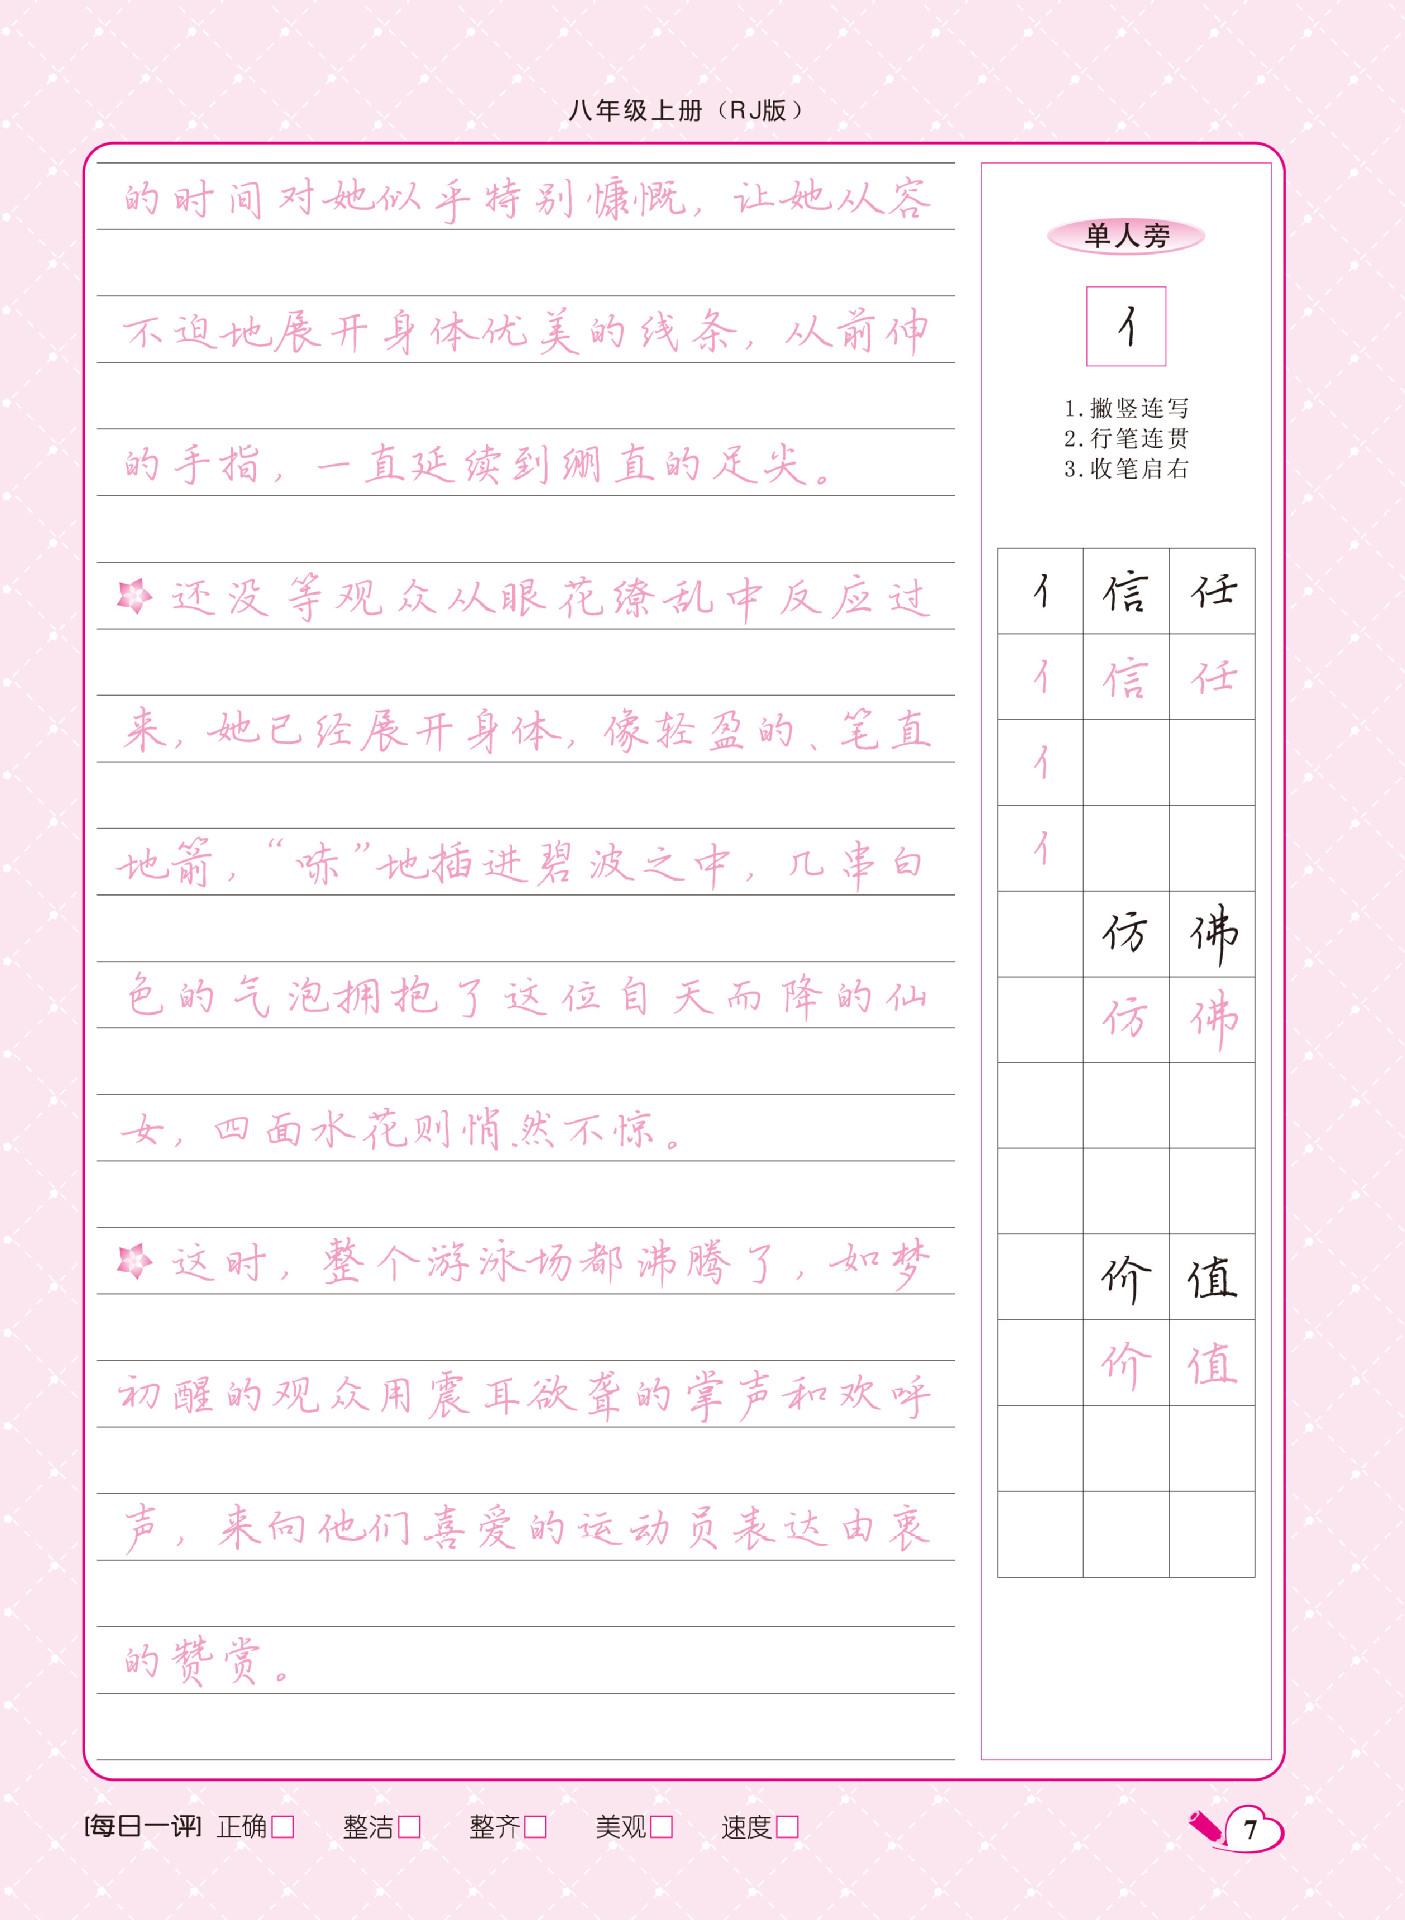 八年级上册（RJ版）
的时间对她似乎特别慷慨，让她从容
不迫地展开身体优美的线条，从前伸
的手指，一直延续到绷直的足尖。
还没等观众从眼花缭乱中反应过
来，她已经展开身体，像轻盈的、笔直
地箭，“哧”地插进碧波之中，几串白
色的气泡拥抱了这位自天而降的仙
女，四面水花则悄然不惊。
这时，整个游泳场都沸腾了，如梦
初醒的观众用震耳欲聋的掌声和欢呼
声，来向他们喜爱的运动员表达由衷
的赞赏。
单人旁
亻
1.撇竖连写
2.行笔连贯
3.收笔启右
亻 信 任
亻 信 任
亻
亻
仿 佛
仿 佛
价 值
价 值
[每日一评] 正确□ 整洁□ 整齐□ 美观□ 速度□
7